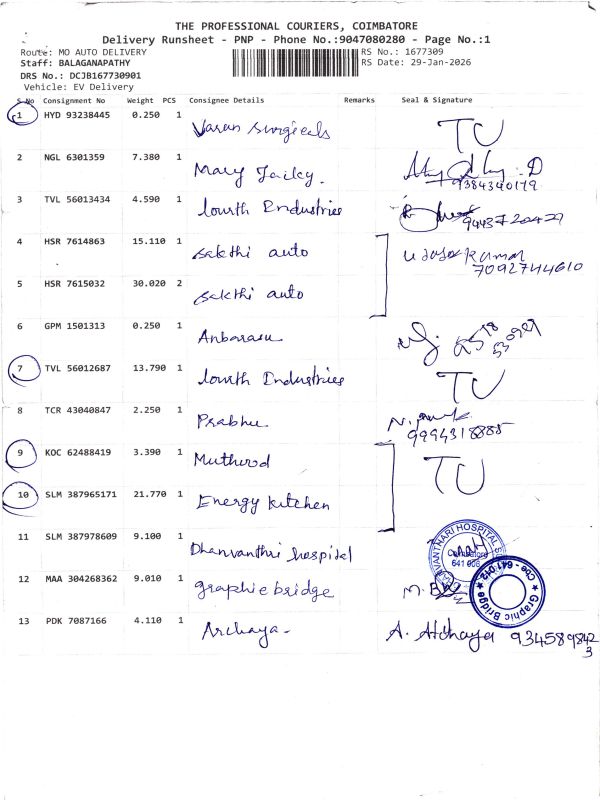 THE PROFESSIONAL COURIERS, COIMBATORE
Delivery Runsheet - PNP - Phone No.:9047080280 - Page No.:1
Route: MO AUTO DELIVERY
RS No.: 1677309
Staff: BALAGANAPATHY
RS Date: 29-Jan-2026
DRS No.: DCJB167730901
Vehicle: EV Delivery
S.No Consignment No Weight PCS Consignee Details Remarks Seal & Signature
1 HYD 93238445 0.250 1 Varan Surgicals TU
2 NGL 6301359 7.380 1 Mary Jaiky. 9384340179
3 TVL 56013434 4.590 1 lourth Endustries 9443720429
4 HSR 7614863 15.110 1 sakthi auto Udaya Kumar
7092744610
5 HSR 7615032 30.020 2 sakthi auto
6 GPM 1501313 0.250 1 Anbarasu
7 TVL 56012687 13.790 1 lourth Endustries TU
8 TCR 43040847 2.250 1 Prabhu 9994318885
9 KOC 62488419 3.390 1 Muthood TU
10 SLM 387965171 21.770 1 Energy kitchen
11 SLM 387978609 9.100 1 Dhanvanthri hospital
HOSPITAL
Coimbatore
641 006
12 MAA 304268362 9.010 1 graphic bridge
Graphic Bridge ★ Cbe - 641 012 ★
13 PDK 7087166 4.110 1 Archaya- A. Atchaya 9345898423